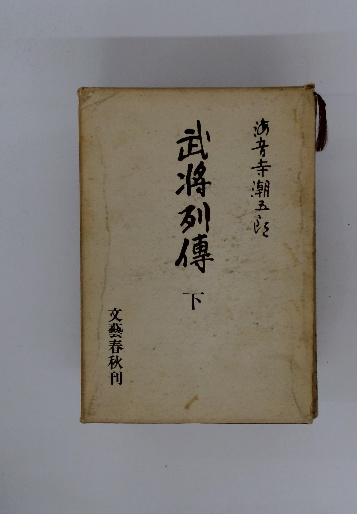 海音寺潮五郎
武将列傳
下
文藝春秋刊